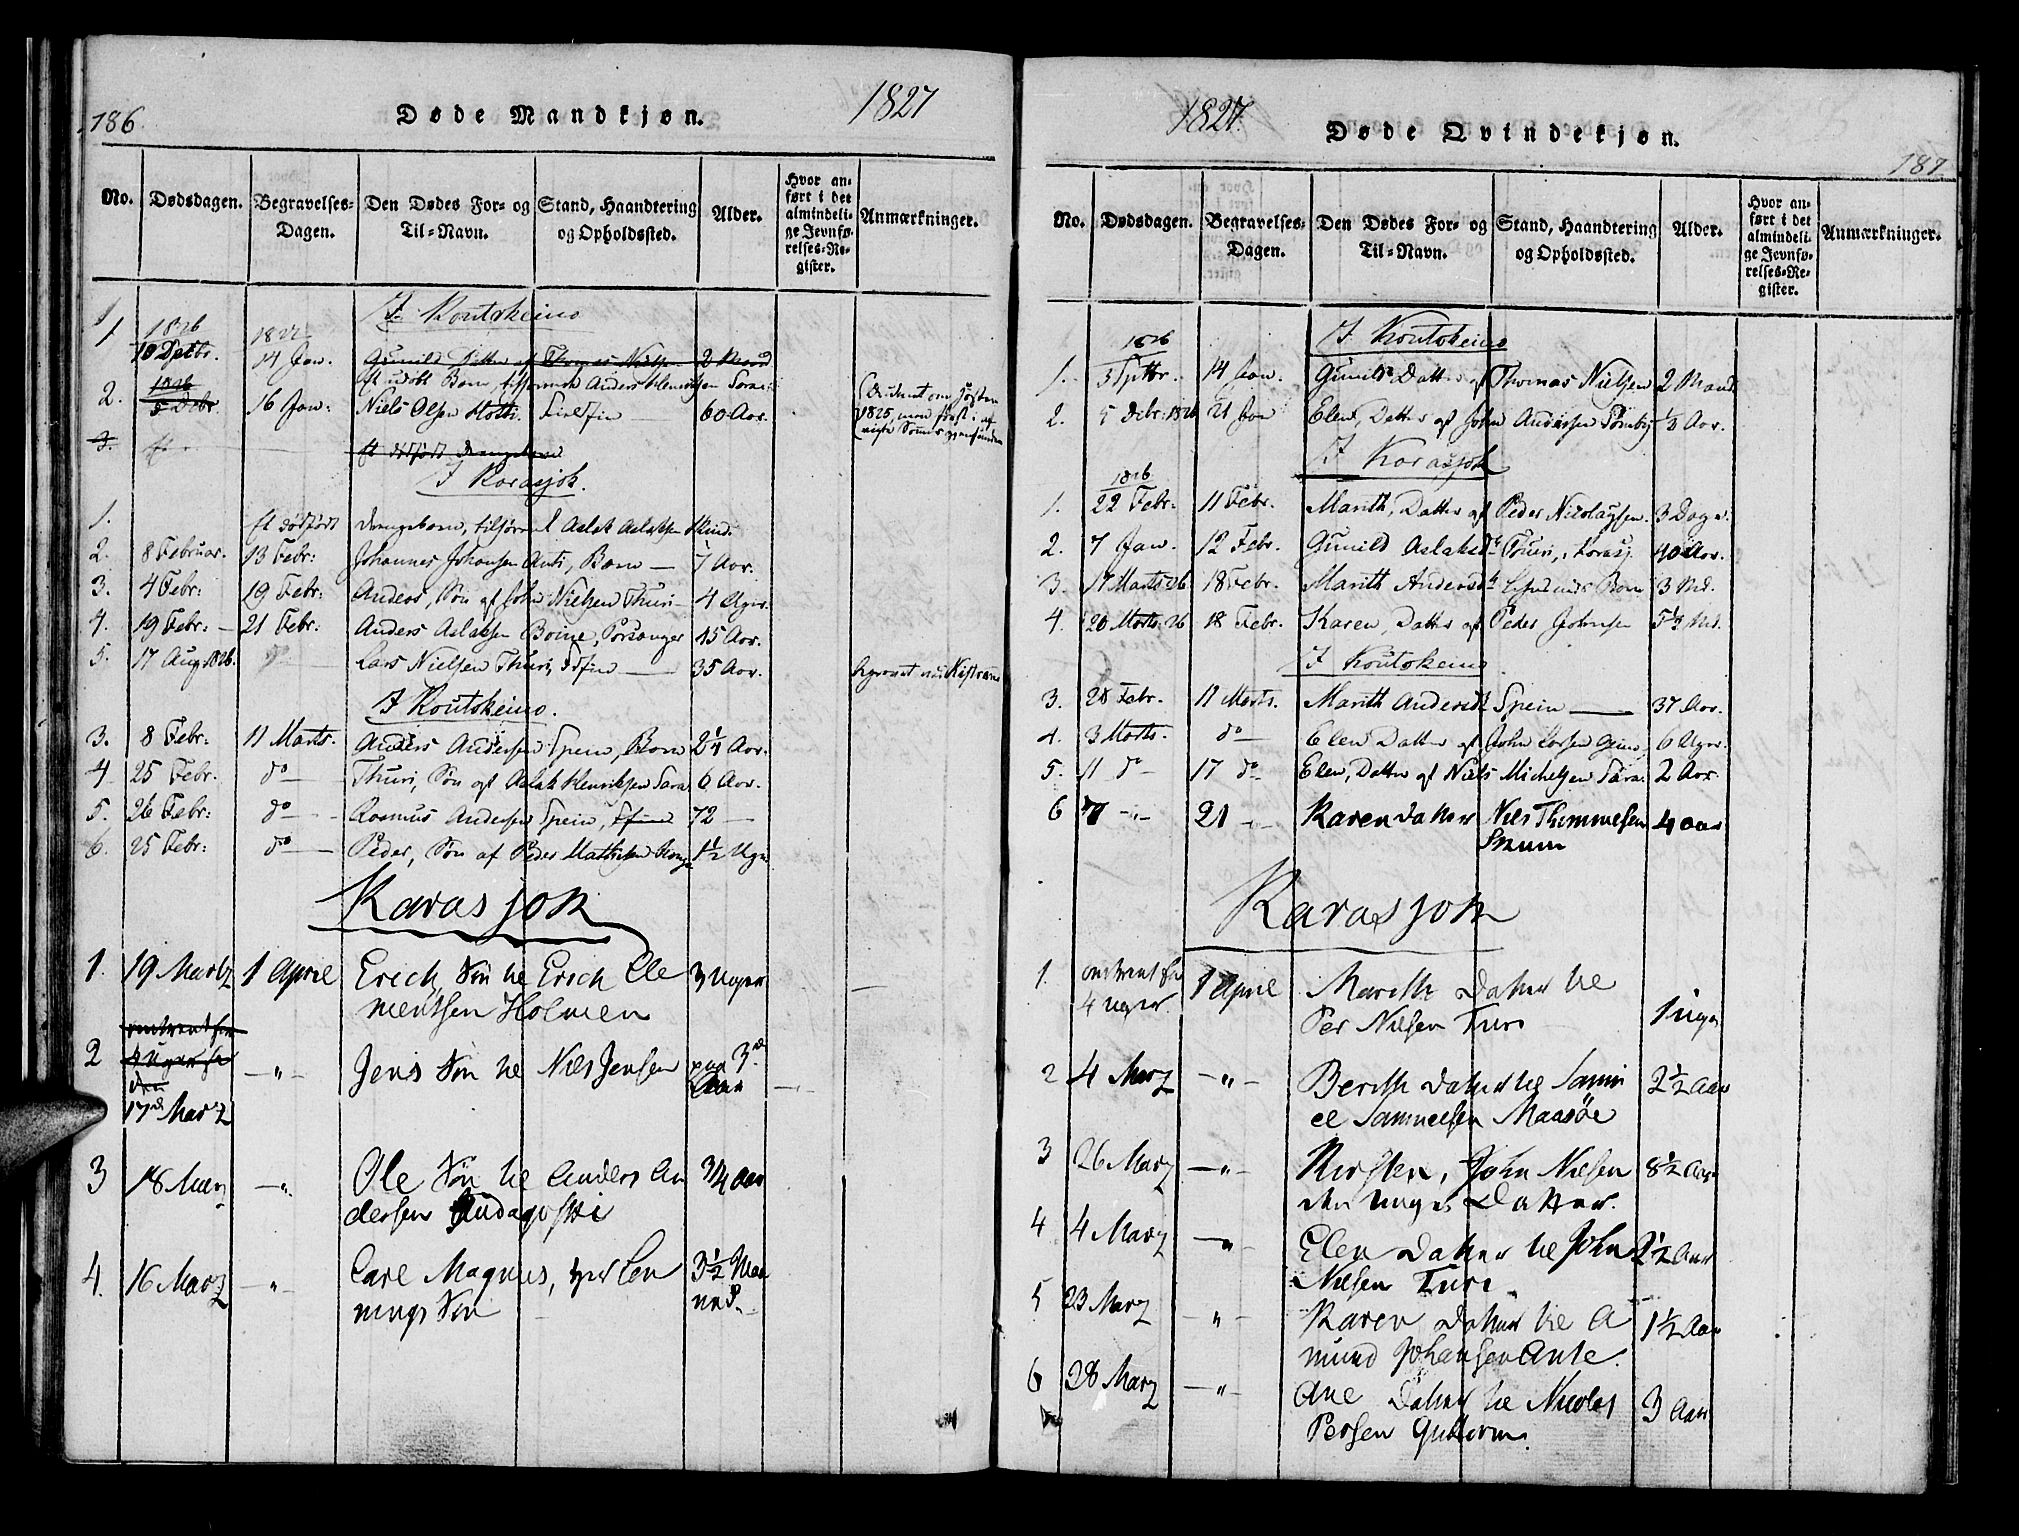 186.
Døde Mandkjøn.
1827
No. Dødsdagen. Begravelses-Dagen. Den Dødes For- og Til-Navn. Stand, Haandtering og Opholdssted. Alder. Hvor anført i det almindelige Jevnførelses-Register. Anmærkninger.
I Koutokeino
1 1826 10 1827 14 Jan. Gunild Datter af Thomas Nielsen 2 Maand
Et udøbt Barn, tilhørende Anders Henrichsen Sara
2. 1826 5 Debr. 16 Jan: Niels Olsen Søefin 60 Aar. Druknet om Høsten
1825, men først i af
vigte Sommer gjenfunden
3. et dødfødt drengebarn
I Karasjok.
1. et dødfødt drengebarn, tilhørende Aslak Aslaksen
2. 8 Februar. 13 Febr: Johannes Johansen Anti, Barn — 7 Aar.
3. 4 Febr: 19 Febr: Anders, Søn af John Nielsen Thuri — 4 Uger.
4. 19 Febr: — 21 Febr: Anders Aslaksen Boine, Porsanger 45 Aar.
5. 17 Aug 1826. do Lars Nielsen Thuri, — 35 Aar. begravet ved Kistrand
I Koutokeino.
3. 8 Febr: 11 Marts. Anders Andersen Spein, Barn 2 1/4 Aar.
4 25 Febr. do — Thuri, Søn af Aslak Henriksen Sara 6 Aar.
5. 26 Febr: do — Rasmus Andersen Spein, 72 —
6. 25 Febr: do — Peder, Søn af Peder Mathisen 1 1/2 Ugr
Karasjok
1. 19 Martz 1 April Erich, Søn til Erich Cle 3 Uger
mentsen Holmen
omtrent for
2 4 Uger
17de Martz —"— Jens Søn til Niels Jensen paa 3de
Aar
3 18 Marz —". Ole Søn til Anders An 3/4 Aar
dersen Audagosti
4. 16 Marz —"— Carl Magnus, 3 1/2 Maa
nings Søn ned.
1827.
Døde Qvindekjøn.
187
No. Dødsdagen. Begravelses-Dagen. Den Dødes For- og Til-Navn. Stand, Haandtering og Opholdssted. Alder. Hvor anført i det almindelige Jevnførelses-Register. Anmærkninger.
I Koutokeino
1826
1. 3 Sptbr. 14 Jan. Gunild Datter af Thomas Nielsen 2 Maand
2. 5 Debr: 1826 21 Jan Elen, Datter af John Andersen 1/3 Aar.
I Karasjok
1826
1. 22 Febr: 11 Febr. Marith, Datter af Peder Nicolaysen. 3 Dage.
2. 7 Jan. 12 Febr. Gunild Aslaksdr Thuri, Karasj. 40 Aar.
3. 17 Marts 26 18 Febr. Marith Andersdr Barn 3 Md.
4. 20 Marts 26 18 Febr. Karen, Datter af Peder Johnsen 5 1/4 Md.
I Koutokeino
3. 28 Febr. 11 Marts. Marith Andersdr Spein — 37 Aar.
4. 3 Marts. do — Elen Datter af John Larsen 6 Uger.
5. 11 do — 17 do Elen, Datter af Niels Michelsen Sara 2 Aar.
6 —"— 21 —"— Karen Datter Niels Thommesen 4 Aar
Skum
Karasjok
1 omtrent for 1 April Mareth Datter til
4 uger Per Nielsen Turi 1 uge
2 4 Marz —"— Bereth Datter til Samu 2 1/2 Aar
el Samuelsen Maasöe
3 26 Marz —"— Kirsten, John Nielsen 8 1/2 Aar
den unges Datter.
4 4 Marz —"— Elen Datter til John 2 1/2 Aar
Nielsen Turi
5 23 Marz —"— Karen Datter til A 1 1/2 Aar
mund Johansen Ante.
6 28 Marz —"— Ane Datter til Nicolas 3 Aar
Persen Guttorm